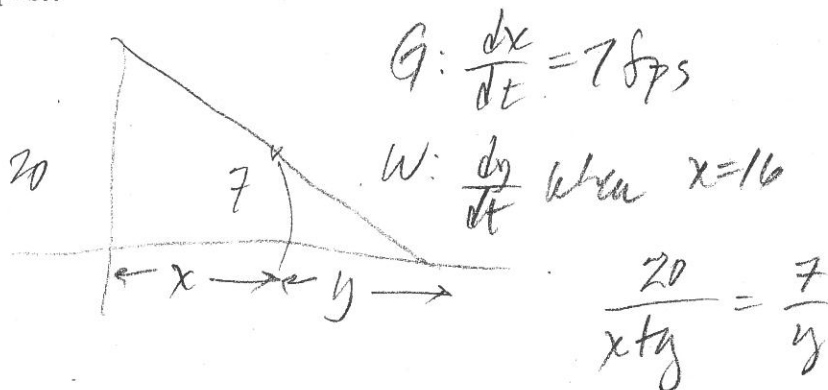 G: dx/dt = 7 fps
20
7
W: dy/dt when x=16
← x → ← y →
20/(x+y) = 7/y